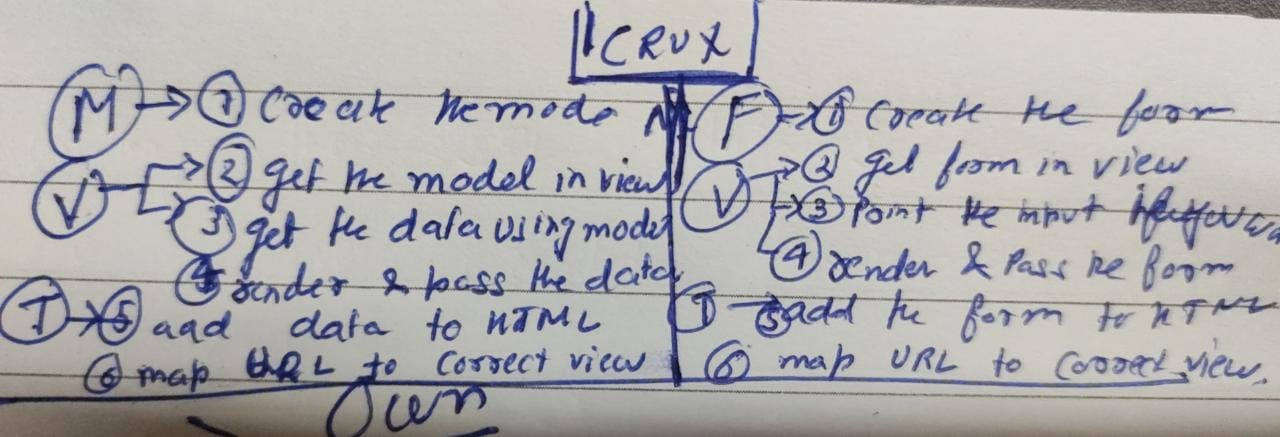 CRUX
M → ① Create the mode
V → ② get the model in view
③ get the data using model
④ render & pass the data
T → ⑤ add data to HTML
⑥ map URL to correct view
F → ① Create the form
V → ② get form in view
③ Point the input
④ render & Pass the form
T → ⑤ add the form to HTML
⑥ map URL to correct view.
Own